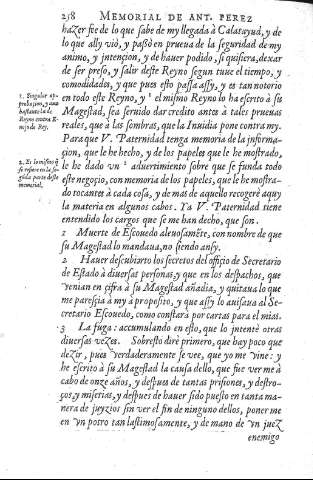 238 MEMORIAL DE ANT. PEREZ
hazer fee de lo que sabe de my llegada à Calatayud, y de
lo que ally viò, y passò en prueua de la seguridad de my
animo, y intençion, y de hauer podido, si quisiera, dexar
de ser preso, y salir deste Reyno segun tuue el tiempo, y
comodidades, y que pues esto passa assy, y es tan notorio
en todo este Reyno, y 1 el mismo Reyno lo ha escrito à su
Magestad, sea seruido dar credito antes à tales prueuas
reales, que à las sombras, que la Inuidia pone contra my.
Para que V. Paternidad tenga memoria de la informa-
çion, que le he hecho, y de los papeles que le he mostrado,
le he dado vn 2 aduertimiento sobre que se funda todo
este negoçio, con memoria de los papeles, que le he mostra-
do tocantes à cada cosa, y de mas de aquello recogerè aquy
la materia en algunos cabos. Ya V. Paternidad tiene
entendido los cargos que se me han decho, que son.
1 Muerte de Escouedo aleuosamẽte, con nombre de que
su Magestad lo mandaua, no siendo ansy.
2 Hauer descubierto los secretos del officio de Secretario
de Estado à diuersas personas, y que en los despachos, que
venian en cifra à su Magestad añadia, y quitaua lo que
me paresçia à my à proposito, y que assy lo auisaua al Se-
cretario Escouedo, como constarà por cartas para el mias.
3 La fuga: accumulando en esto, que lo jntentè otras
diuersas vezes. Sobresto dirè primero, que hay poco que
dezir, pues verdaderamente se vee, que yo me vine: y
he escrito à su Magestad la causa dello, que fue ver me à
cabo de onze años, y despues de tantas prisiones, y destro-
ços, y miserias, y despues de hauer sido puesto en tanta ma-
nera de juyzios sin ver el fin de ninguno dellos, poner me
en vn potro tan lastimosamente, y de mano de vn juez
enemigo
1. Singular ap-
probaçion, y muy
bastante de vn
Reyno contra E-
mijo de Rey.
2. Es lo mismo q̃
se refiere en la se-
gũda parte deste
memorial.